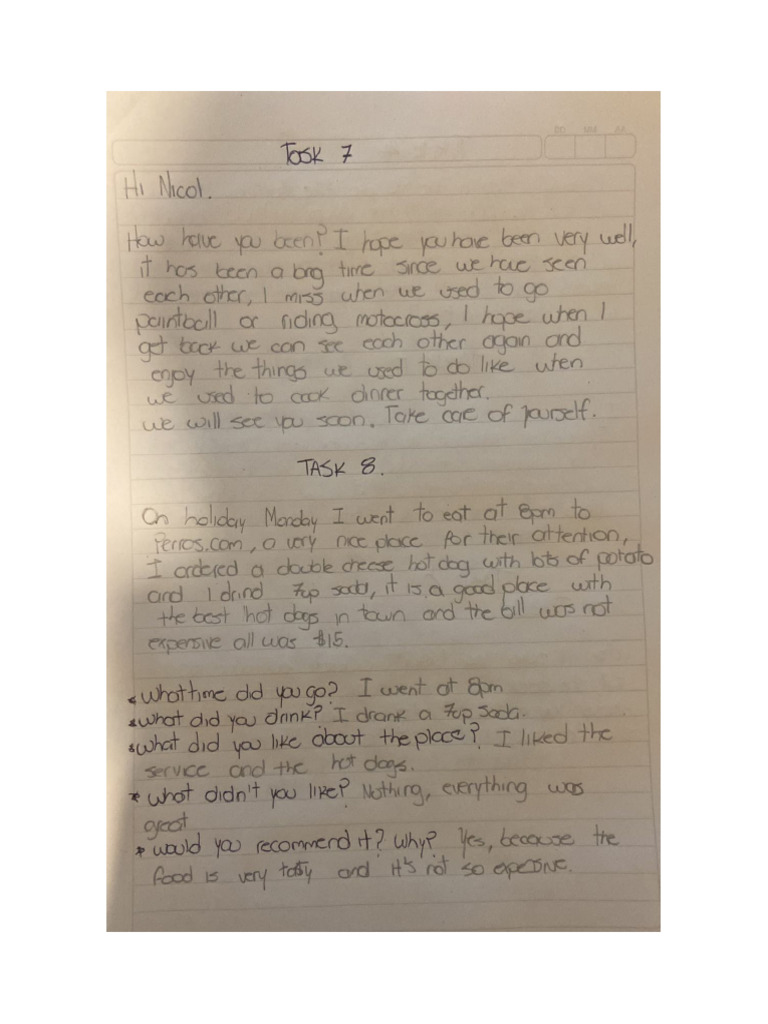 Task 7
Hi Nicol.
How have you been? I hope you have been very well,
it has been a long time since we have seen
each other, I miss when we used to go
paintball or riding motocross, I hope when I
get back we can see each other again and
enjoy the things we used to do like when
we used to cook dinner together.
we will see you soon. Take care of yourself.
TASK 8.
On holiday Monday I went to eat at 8pm to
Perros.com, a very nice place for their attention,
I ordered a double cheese hot dog with lots of potato
and I drind 7up soda, it is a good place with
the best hot dogs in town and the bill was not
expensive all was $15.
what time did you go? I went at 8pm
* what did you drink? I drank a 7up soda.
* what did you like about the place? I liked the
service and the hot dogs.
* what didn't you like? Nothing, everything was
great
* would you recommend it? Why? Yes, because the
food is very tasty and it's not so expesive.